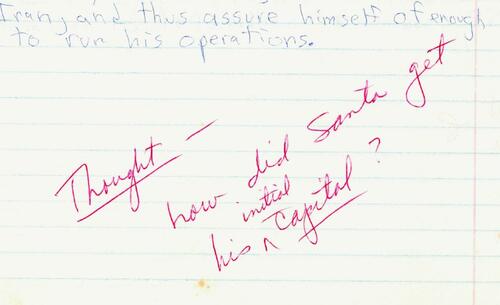 Iran, and thus assure himself of enough
to run his operations.
Thought —
how did Santa get
his ^ initial capital?